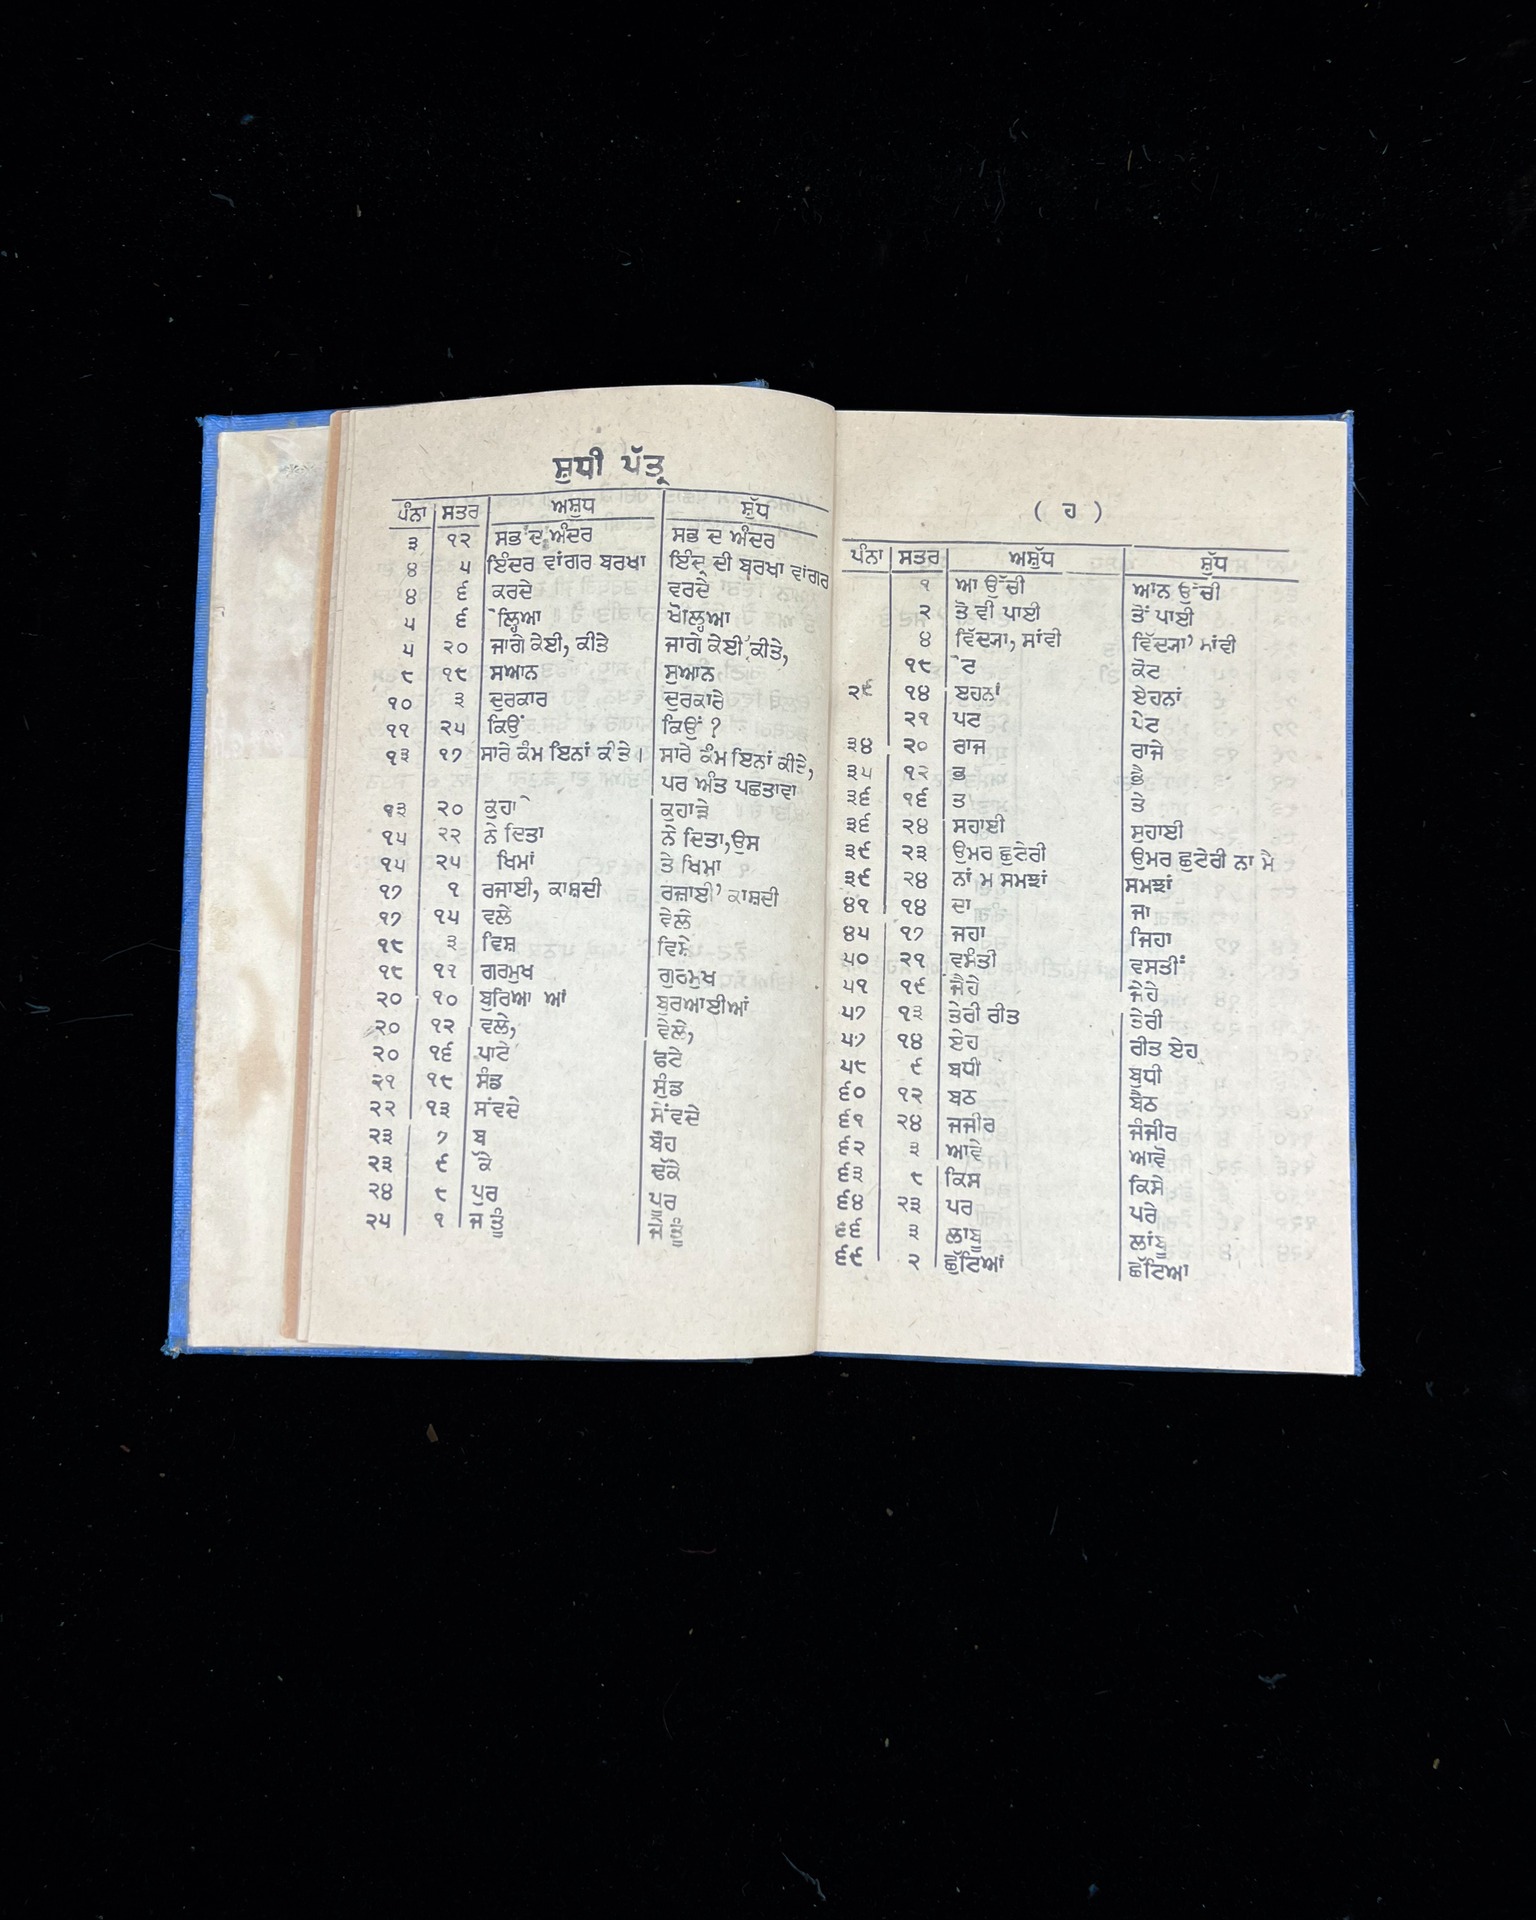 ਸ਼ੁਧੀ ਪੱਤ੍ਰ
ਪੰਨਾ ਸਤਰ ਅਸ਼ੁਧ ਸ਼ੁੱਧ
੩ ੧੨ ਸਭ ਦ ਅੰਦਰ ਸਭ ਦ ਅੰਦਰ
੪ ੫ ਇੰਦਰ ਵਾਂਗਰ ਬਰਖਾ ਇੰਦ੍ਰ ਦੀ ਬਰਖਾ ਵਾਂਗਰ
੪ ੬ ਕਰਦੇ ਵਰਦੇ
੫ ੬ ਲ੍ਹਿਆ ਖੋਲ੍ਹਿਆ
੫ ੨੦ ਜਾਗੇ ਕੇਈ, ਕੀਤੇ ਜਾਗੇ ਕੇਈ ਕੀਤੇ,
੮ ੧੮ ਸਆਨ ਸੁਆਨ
੧੦ ੩ ਦੁਰਕਾਰ ਦੁਰਕਾਰੇ
੧੧ ੨੫ ਕਿਉਂ ਕਿਉਂ ?
੧੩ ੧੭ ਸਾਰੇ ਕੰਮ ਇਨਾਂ ਕੀਤੇ । ਸਾਰੇ ਕੰਮ ਇਨਾਂ ਕੀਤੇ,
ਪਰ ਅੰਤ ਪਛਤਾਵਾ
੧੩ ੨੦ ਕੁਹਾ ੇ ਕੁਹਾੜੇ
੧੫ ੨੨ ਨੇ ਦਿਤਾ ਨੇ ਦਿਤਾ,ਉਸ
੧੫ ੨੫ ਖਿਮਾਂ ਤੇ ਖਿਮਾ
੧੭ ੧ ਰਜਾਈ, ਕਾਸ਼ਦੀ ਰਜ਼ਾਈ' ਕਾਸ਼ਦੀ
੧੭ ੧੫ ਵਲੇ ਵੇਲੇ
੧੮ ੩ ਵਿਸ਼ ਵਿਸ਼ੇ
੧੮ ੧੧ ਗਰਮੁਖ ਗੁਰਮੁਖ
੨੦ ੧੦ ਬੁਰਿਆ ਆਂ ਬੁਰਆਈਆਂ
੨੦ ੧੨ ਵਲੇ, ਵੇਲੇ,
੨੦ ੧੬ ਪਾਟੇ ਫਟੇ
੨੧ ੧੮ ਸੰਡ ਸੁੰਡ
੨੨ ੧੩ ਸਾਂਵਦੇ ਸੋਂਵਦੇ
੨੩ ੭ ਬ ਬੌਹ
੨੩ ੯ ੱਕੇ ਢੱਕੇ
੨੪ ੮ ਪੁਰ ਪੂਰ
੨੫ ੧ ਜ ਤੂੰ ਜੇ ਤੂੰ
( ਹ )
ਪੰਨਾ ਸਤਰ ਅਸ਼ੁੱਧ ਸ਼ੁੱਧ
੧ ਆ ਉੱਚੀ ਆਨ ਉੱਚੀ
੨ ਤੋ ਵੀ ਪਾਈ ਤੋਂ ਪਾਈ
੪ ਵਿੱਦਯਾ, ਸਾਂਵੀ ਵਿੱਦਯਾ' ਸਾਂਵੀ
੧੮ ੋਟ ਕੋਟ
੨੯ ੧੪ ੲਹਨਾਂ ਏਹਨਾਂ
੨੧ ਪਟ ਪੇਟ
੩੪ ੨੦ ਰਾਜ ਰਾਜੇ
੩੫ ੧੨ ਭ ਭੈ
੩੬ ੧੬ ਤ ਤੇ
੩੬ ੨੪ ਸਹਾਈ ਸੁਹਾਈ
੩੯ ੨੩ ਉਮਰ ਛੁਟੇਰੀ ਉਮਰ ਛੁਟੇਰੀ ਨਾ ਮੈ
੩੯ ੨੪ ਨਾਂ ਮ ਸਮਝਾਂ ਸਮਝਾਂ
੪੧ ੧੪ ਦਾ ਜਾ
੪੫ ੧੭ ਜਹਾ ਜਿਹਾ
੫੦ ੨੧ ਵਸੰਤੀ ਵਸਤੀਂ
੫੧ ੧੯ ਜੈਹੇ ਜੇਹੇ
੫੭ ੧੩ ਤੇਰੀ ਰੀਤ ਤੇਰੀ
੫੭ ੧੪ ਏਹ ਰੀਤ ਏਹ
੫੮ ੯ ਬਧੀ ਬੁਧੀ
੬੦ ੧੨ ਬਠ ਬੈਠ
੬੧ ੨੪ ਜਜੀਰ ਜੰਜੀਰ
੬੨ ੩ ਆਵੇ ਆਵੋ
੬੩ ੮ ਕਿਸ ਕਿਸੇ
੬੪ ੨੩ ਪਰ ਪਰੇ
੬੬ ੩ ਲਾਬੂ ਲਾਂਬੂ
੬੯ ੨ ਛੁੱਟਿਆਂ ਛੁੱਟਿਆ